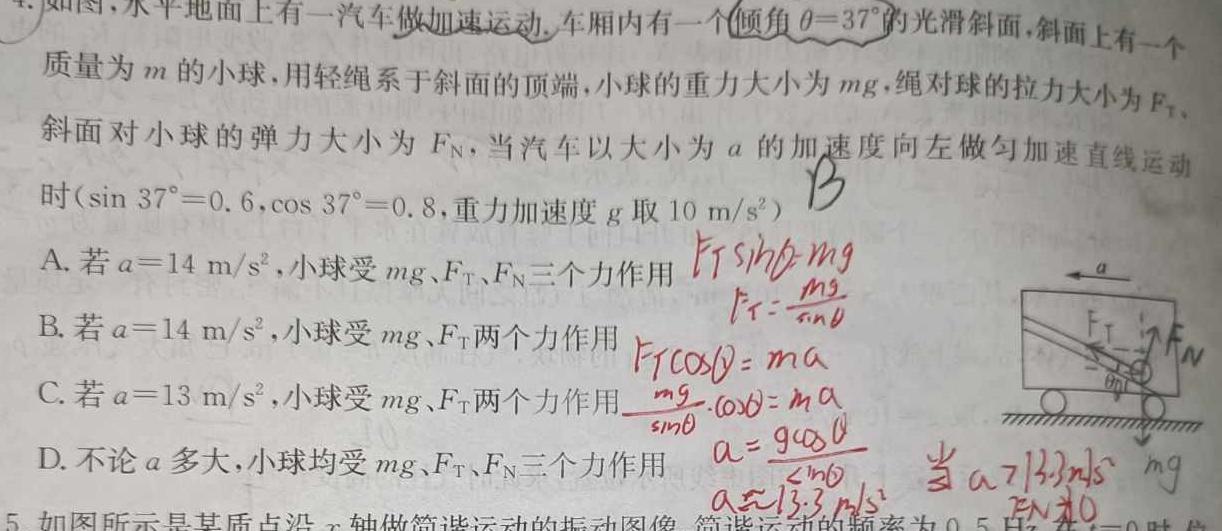 4. 如图,水平地面上有一汽车做加速运动.车厢内有一个倾角 θ=37°的光滑斜面,斜面上有一个
质量为 m 的小球,用轻绳系于斜面的顶端,小球的重力大小为 mg,绳对球的拉力大小为 F_T、
斜面对小球的弹力大小为 F_N,当汽车以大小为 a 的加速度向左做匀加速直线运动
时(sin 37°=0.6,cos 37°=0.8,重力加速度 g 取 10 m/s²) B
A. 若 a=14 m/s²,小球受 mg、F_T、F_N三个力作用
F_T sinθ=mg
F_T=mg/sinθ
B. 若 a=14 m/s²,小球受 mg、F_T两个力作用
F_T cosθ=ma
C. 若 a=13 m/s²,小球受 mg、F_T两个力作用
mg/sinθ·cosθ=ma
D. 不论 a 多大,小球均受 mg、F_T、F_N三个力作用
a=gcosθ/sinθ
a≈13.3 m/s²
当 a>13.3m/s²
a
F_T
F_N
θ
mg
5. 如图所示是某质点沿 x 轴做简谐运动的振动图像,简谐运动的频率为 0.5 Hz